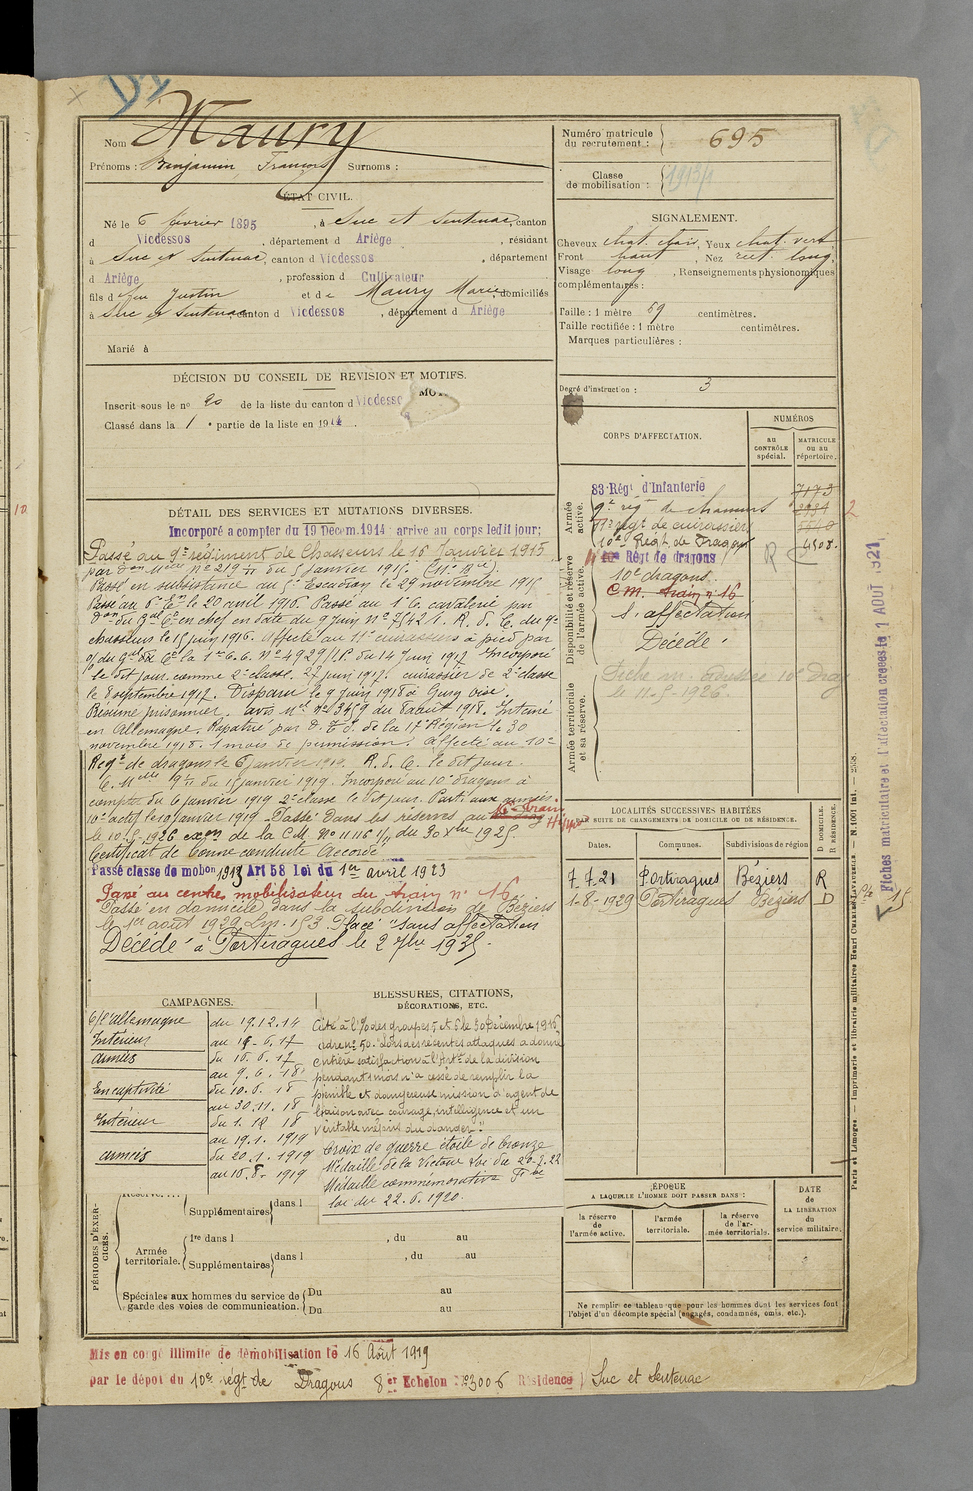 D1
Nom Maury
Prénoms : Benjamin, François Surnoms :
Numéro matricule du recrutement : 695
Classe de mobilisation : 1913/1
ÉTAT CIVIL.
Né le 6 février 1895, à Suc et Sentenac, canton
d Vicdessos, département d Ariège, résidant
à Suc et Sentenac, canton d Vicdessos, département
d Ariège, profession d Cultivateur
fils d feu Justin et d e Maury Marie, domiciliés
à Suc et Sentenac, canton d Vicdessos, département d Ariège
Marié à
SIGNALEMENT.
Cheveux chat. clair, Yeux chat. vert
Front haut, Nez rect. long,
Visage long, Renseignements physionomiques
complémentaires :
Taille : 1 mètre 69 centimètres.
Taille rectifiée : 1 mètre centimètres.
Marques particulières :
Degré d'instruction : 3
DÉCISION DU CONSEIL DE REVISION ET MOTIFS.
Inscrit sous le nº 20 de la liste du canton d Vicdessos
Classé dans la 1 e partie de la liste en 1914.
CORPS D'AFFECTATION.
NUMÉROS
au CONTRÔLE spécial.
MATRICULE ou au répertoire.
Armée active.
83e Régt d'Infanterie 7173
9e régt de chasseurs 2934
11e régt de cuirassiers
10e Régt de Dragons 4508.
Disponibilité et réserve de l'armée active.
Régt de dragons R
10e dragons.
C.M. train nº 16
S. affectation
Décédé.
Armée territoriale et sa réserve.
le 11-5-1926.
DÉTAIL DES SERVICES ET MUTATIONS DIVERSES.
Incorporé a compter du 19 Decem. 1914 : arrive au corps ledit jour;
Passé au 9e régiment de Chasseurs le 16 Janvier 1915
par don Mlle Nº 219 du 5 Janvier 1915
Passé en subsistance au 5e Escadron le 29 novembre 1915
Passé au 6e Eon le 20 avril 1916. Passé au 1e C. cavalerie par
don du Gal Ct en chef en date du 9 juin Nº 7542. R. d. C. du 9e
chasseurs le 15 juin 1916. Affecté au 11e cuirassiers à pied par
o/ du Gal Ct le 1er C.C. Nº 4929/I.P. du 14 Juin 1917. Incorporé
le dit jour comme 2e classe. 27 juin 1917. cuirassier de 2e classe
le 8 septembre 1917. Disparu le 9 juin 1918 à Gury Oise.
Résumé prisonnier. avis Mel du 8 août 1918. Interné
en Allemagne. Rapatrié par D. T. S. de la 17e Région le 30
novembre 1918. 1 mois de permission. Affecté au 10e
Regt de dragons le 6 janvier 1919. R. d. C. le dit jour.
du 5 janvier 1919. Incorporé au 10e dragons à
compter du 6 janvier 1919 2e classe le dit jour. Parti aux armées
10e actif le 10 Janvier 1919. Passé dans les réserves au
le 10-5-1926 exon de la C.M. Nº 11116 1/11 du 30 Xbre 1925.
Certificat de bonne conduite Accordé
Passé classe de mobon 1913 Art 58 Loi du 1er avril 1923
Passé au centre mobilisateur du train nº 16
Passé en domicile dans la subdivision de Béziers
le 1er août 1929 Placé "sans affectation
Décédé à Portiragues le 2 7bre 1935.
LOCALITÉS SUCCESSIVES HABITÉES
PAR SUITE DE CHANGEMENTS DE DOMICILE OU DE RÉSIDENCE.
Dates. Communes. Subdivisions de région D DOMICILE. R RÉSIDENCE.
7-7-21 Portiragues Béziers R
1-8-1929 Portiragues Béziers D
CAMPAGNES.
C/ l'allemagne du 19.12.14
Intérieur au 15-6-17
armées du 16.6.17
au 9.6.18
En captivité du 10.6.18
au 30.11.18
Intérieur du 1.12.18
au 19.1.1919
armées du 20.1.1919
au 15.8.1919
BLESSURES, CITATIONS,
DÉCORATIONS, ETC.
Cité à l'o/ des groupes 5 et 6 le 30 Décembre 1915
ordre nº 50. "Lors des récentes attaques a donné
entière satisfaction à l'Artie de la division
pendant 1 mois n'a cessé de remplir la
pénible et dangereuse mission d'agent de
liaison avec courage, intelligence et un
véritable mépris du danger."
Croix de guerre étoile de bronze
Médaille de la Victoire loi du 20-7-22
Médaille commémorative Fse
loi du 22.6.1920.
PÉRIODES D'EXERCICES.
Supplémentaires dans l
Armée territoriale.
1re dans l , du au
Supplémentaires dans l , du au
Spéciales aux hommes du service de garde des voies de communication.
Du au
Du au
ÉPOQUE
A LAQUELLE L'HOMME DOIT PASSER DANS :
la réserve de l'armée active.
l'armée territoriale.
la réserve de l'armée territoriale.
DATE de LA LIBÉRATION du service militaire.
Ne remplir ce tableau que pour les hommes dont les services font
l'objet d'un décompte spécial (engagés, condamnés, omis, etc.).
Mis en congé illimité de démobilisation le 16 Août 1919
par le dépot du 10e régt de Dragons 8er Echelon Nº 3006 Résidence Suc et Sentenac
Fiches matriculaire et d'affectation créées le 1 AOUT 1921
Paris et Limoges. — Imprimerie et librairie militaires Henri CHARLES-LAVAUZELLE. — N. 1001 Int. — 2558.